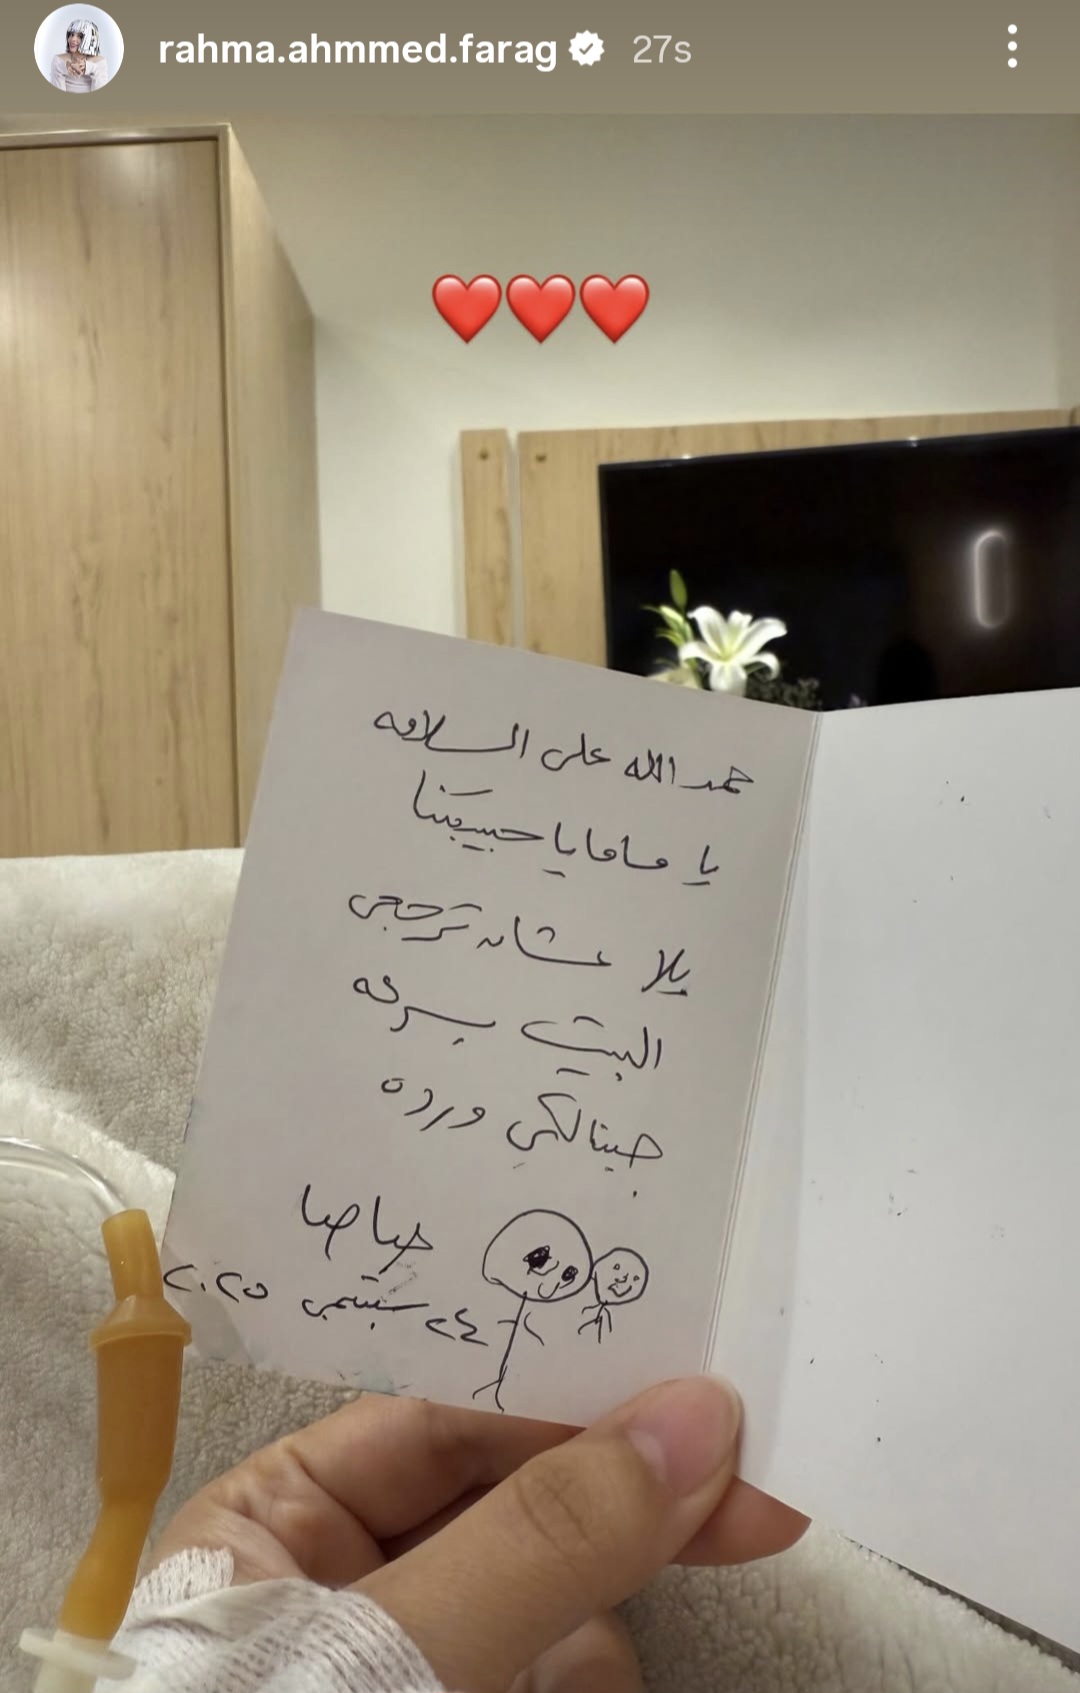 rahma.ahmmed.farag 27s
❤️❤️❤️
حمد الله على السلامه
يا ماما يا حبيبتنا
يلا عشان ترجعي
البيت بسرعه
جبنالكي ورده
٢٤ سبتمبر ٢٠٢٥